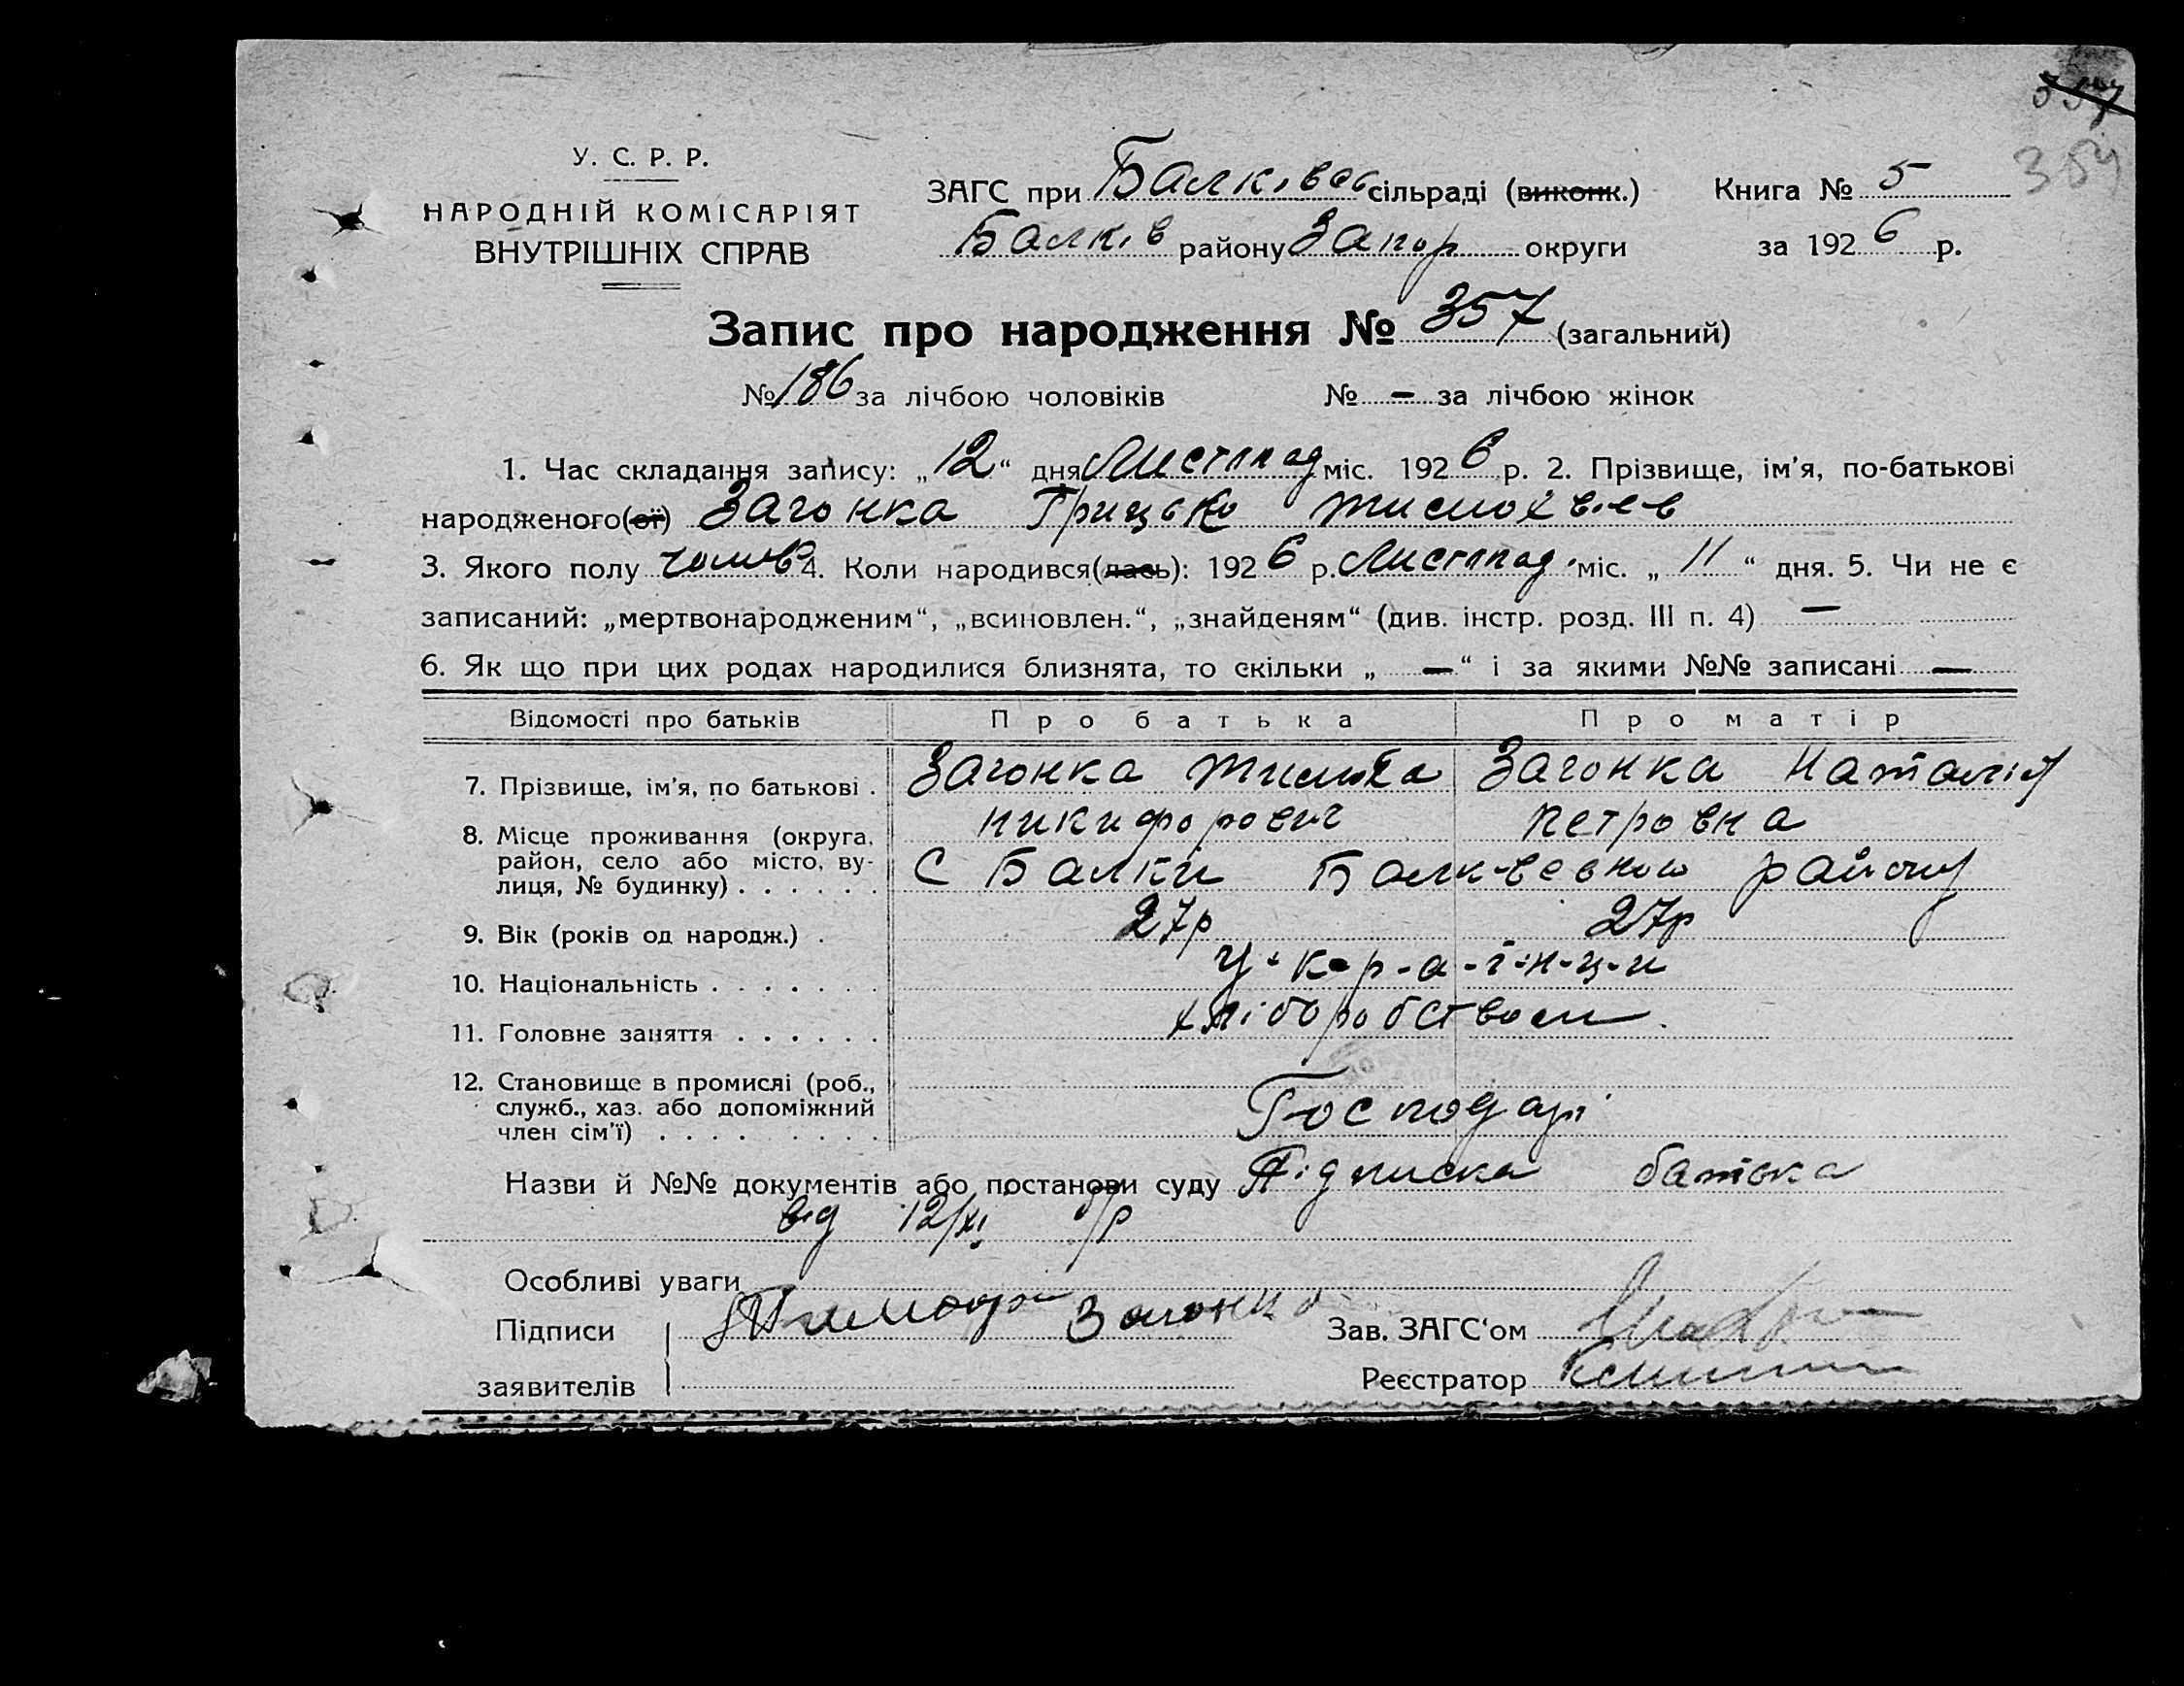 357
354
У. С. Р. Р.
НАРОДНІЙ КОМІСАРІЯТ
ВНУТРІШНІХ СПРАВ
ЗАГС при Балківсь сільраді (виконк.) Книга № 5
Балків району Запор округи за 1926 р.
Запис про народження № 357 (загальний)
№ 186 за лічбою чоловіків № – за лічбою жінок
1. Час складання запису: „12“ дня Листопад міс. 1926 р. 2. Прізвище, ім’я, по-батькові
народженого(ої) Загонка Грицько
3. Якого полу чолов 4. Коли народився(лась): 1926 р. Листопад міс. „11“ дня. 5. Чи не є
записаний: „мертвонародженим“, „всиновлен.“, „знайденям“ (див. інстр. розд. III п. 4) —
6. Як що при цих родах народилися близнята, то скільки „ — “ і за якими №№ записані —
Відомості про батьків Про батька Про матір
7. Прізвище, ім’я, по батькові . Загонка Загонка Наталія
никифорович петровна
8. Місце проживання (округа, район, село або місто, ву-
лиця, № будинку) . . . . . . С Балки Балківського району
9. Вік (років од народж.) . 27р 27р
10. Національність . . . . . . . У-к-р-а-ї-н-ц-и
11. Головне заняття . . . . . . хліборобством.
12. Становище в промислі (роб.,
служб., хаз. або допоміжний
член сім’ї) . . . . . . . . Господарі
Назви й №№ документів або постанови суду Підписка батька
від 12/XI
Особливі уваги
Підписи Загонка Зав. ЗАГС‘ом
заявителів Реєстратор